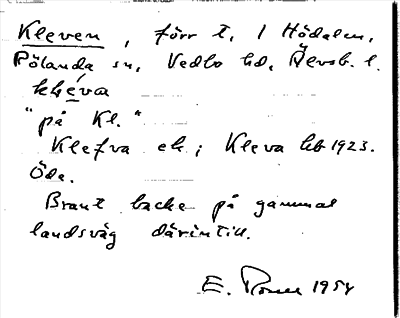 Kleven, förr t. 1 Hödalen,
Rölanda sn, Vedbo hd, Älvsb. l.
kléva
"på Kl."
Klefva ek; Kleva hb 1923.
Öde.
Brant backe på gammal
landsväg därintill.
E. 1954